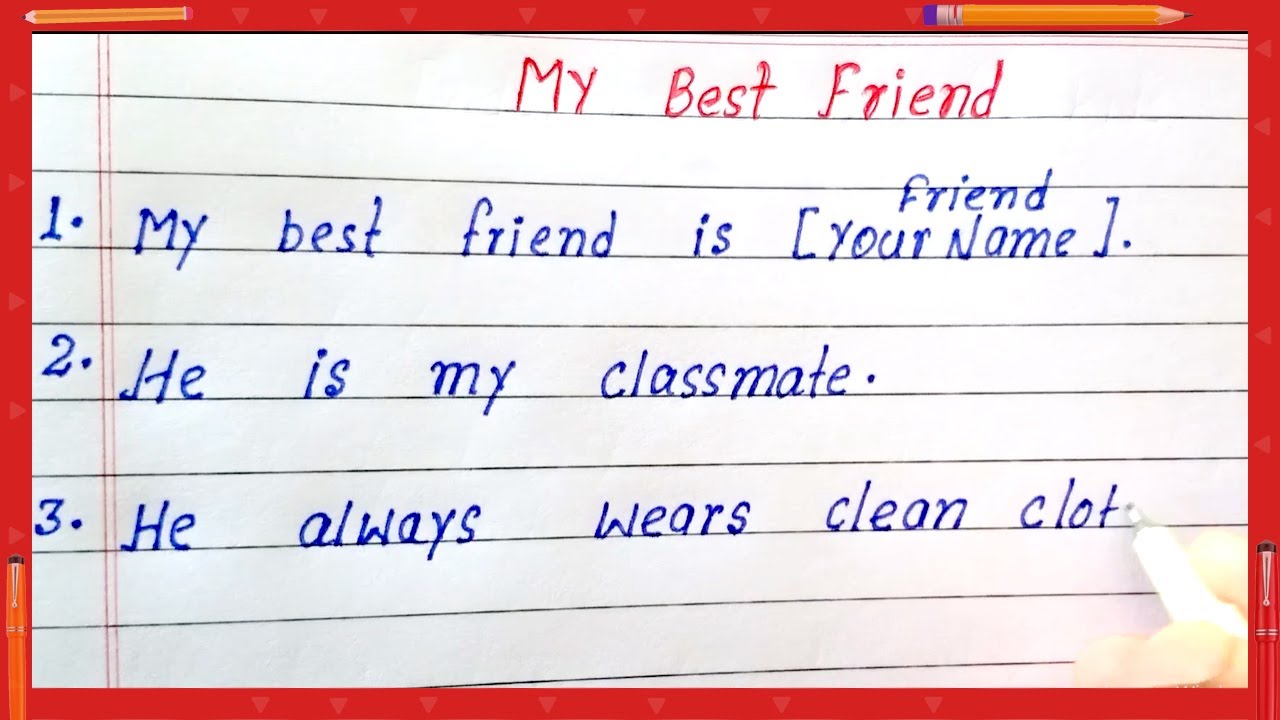 My Best Friend
1. My best friend is [Your friend Name].
2. He is my classmate.
3. He always wears clean clot